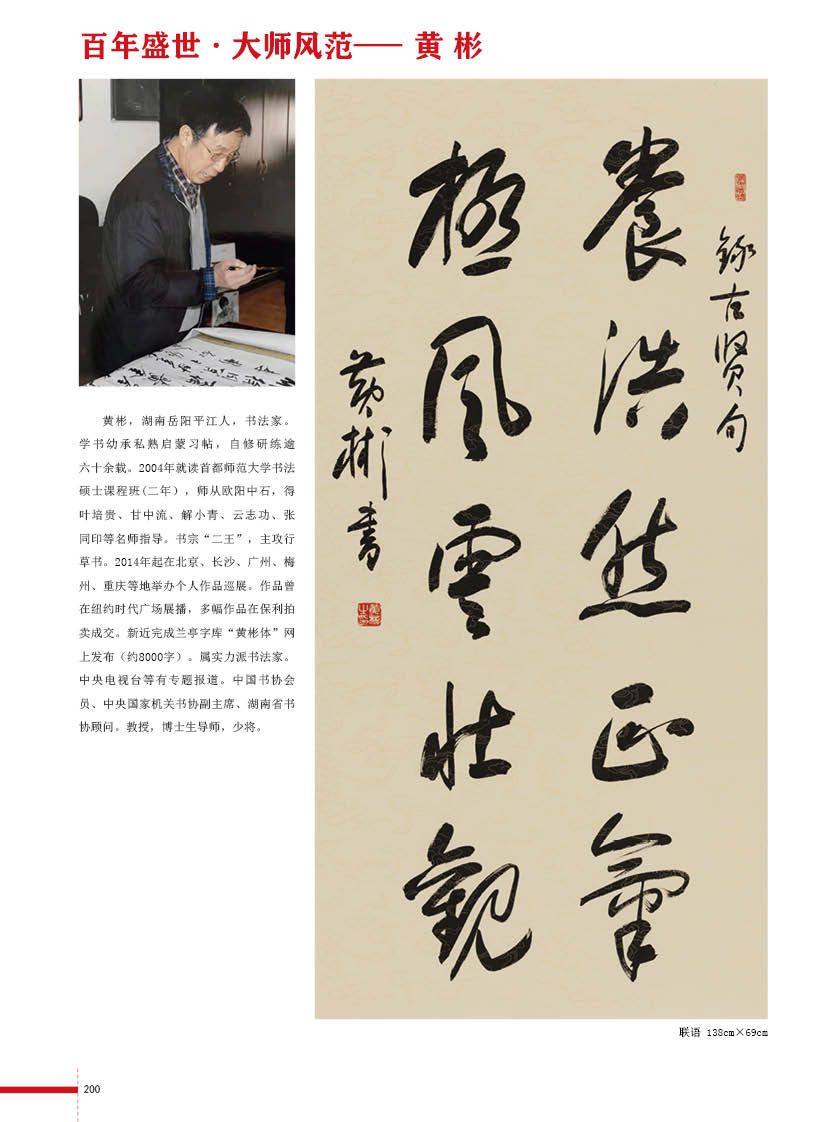 百年盛世·大师风范—— 黄 彬
黄彬，湖南岳阳平江人，书法家。
学书幼承私熟启蒙习帖，自修研练逾
六十余载。2004年就读首都师范大学书法
硕士课程班(二年），师从欧阳中石，得
叶培贵、甘中流、解小青、云志功、张
同印等名师指导。书宗“二王”，主攻行
草书。2014年起在北京、长沙、广州、梅
州、重庆等地举办个人作品巡展。作品曾
在纽约时代广场展播，多幅作品在保利拍
卖成交。新近完成兰亭字库“黄彬体”网
上发布（约8000字）。属实力派书法家。
中央电视台等有专题报道。中国书协会
员、中央国家机关书协副主席、湖南省书
协顾问。教授，博士生导师，少将。
錄古贤句
養浩然正氣
極風雲壮觀
黄彬書
联语 138cm×69cm
200